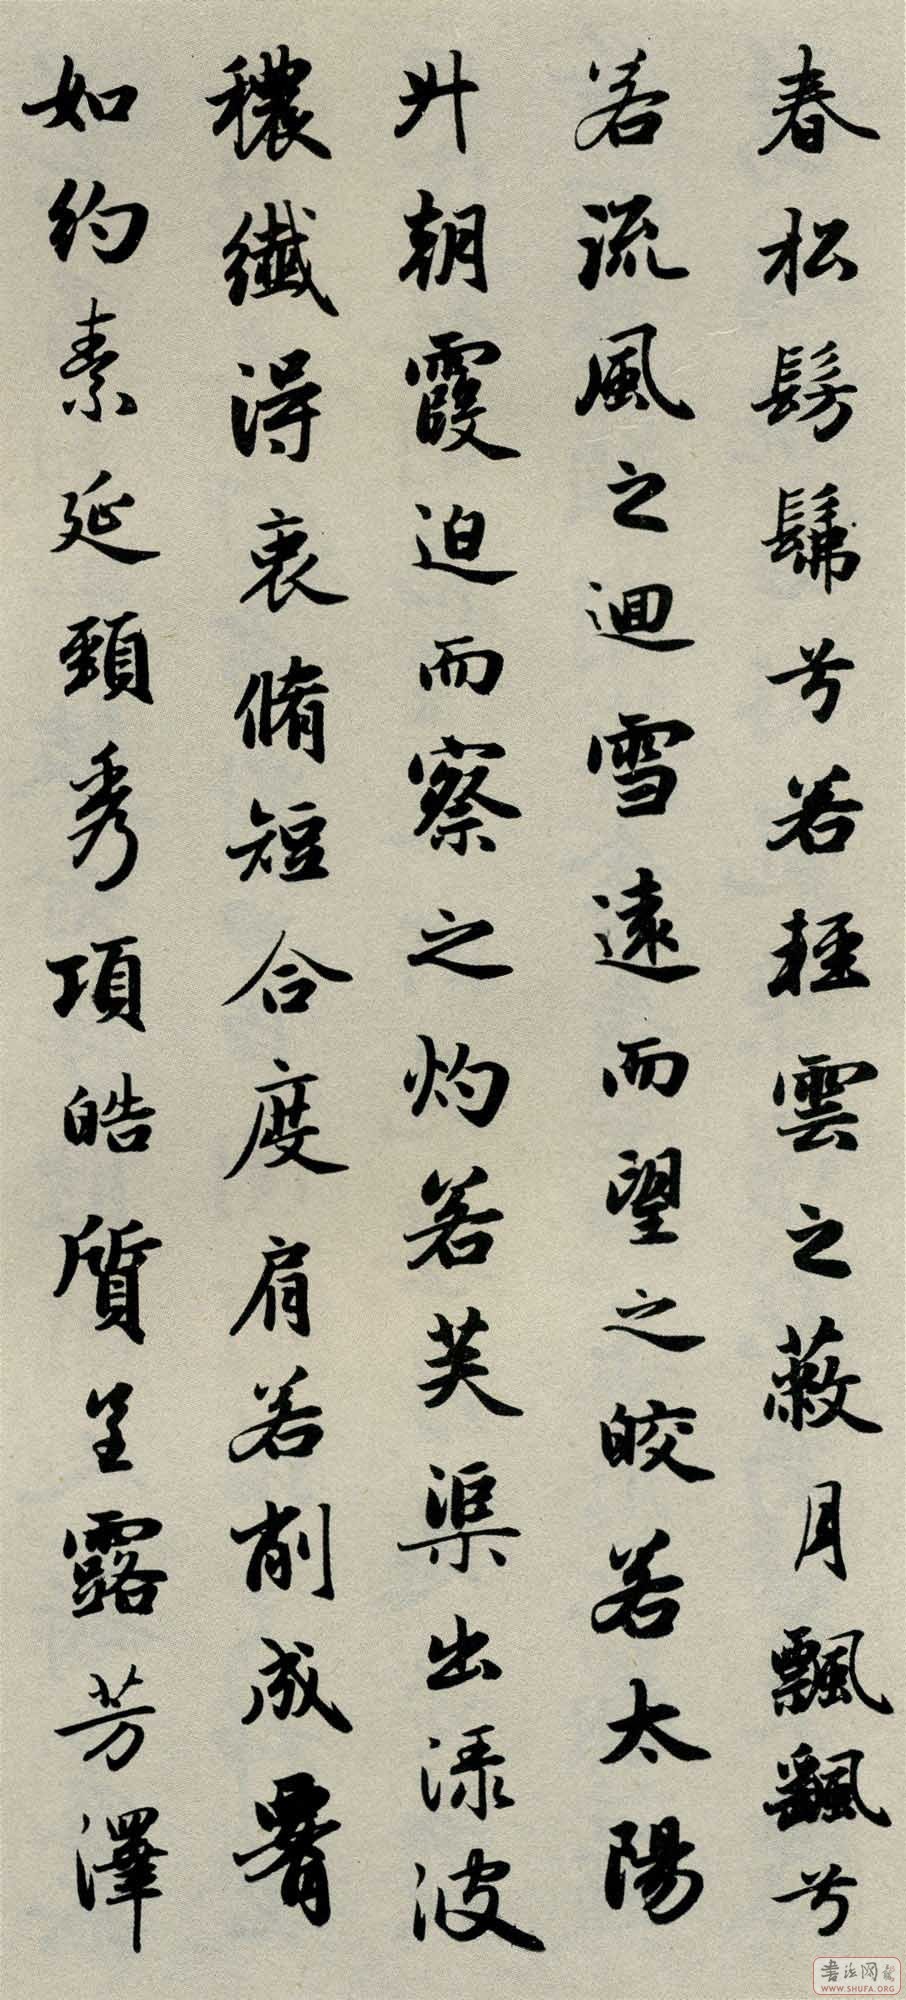 春松髣髴兮若輕雲之蔽月飄颻兮
若流風之迴雪遠而望之皎若太陽
升朝霞迫而察之灼若芙渠出淥波
穠纖得衷脩短合度肩若削成署
如約素延頸秀項皓質呈露芳澤
書法网
WWW.SHUFA.ORG